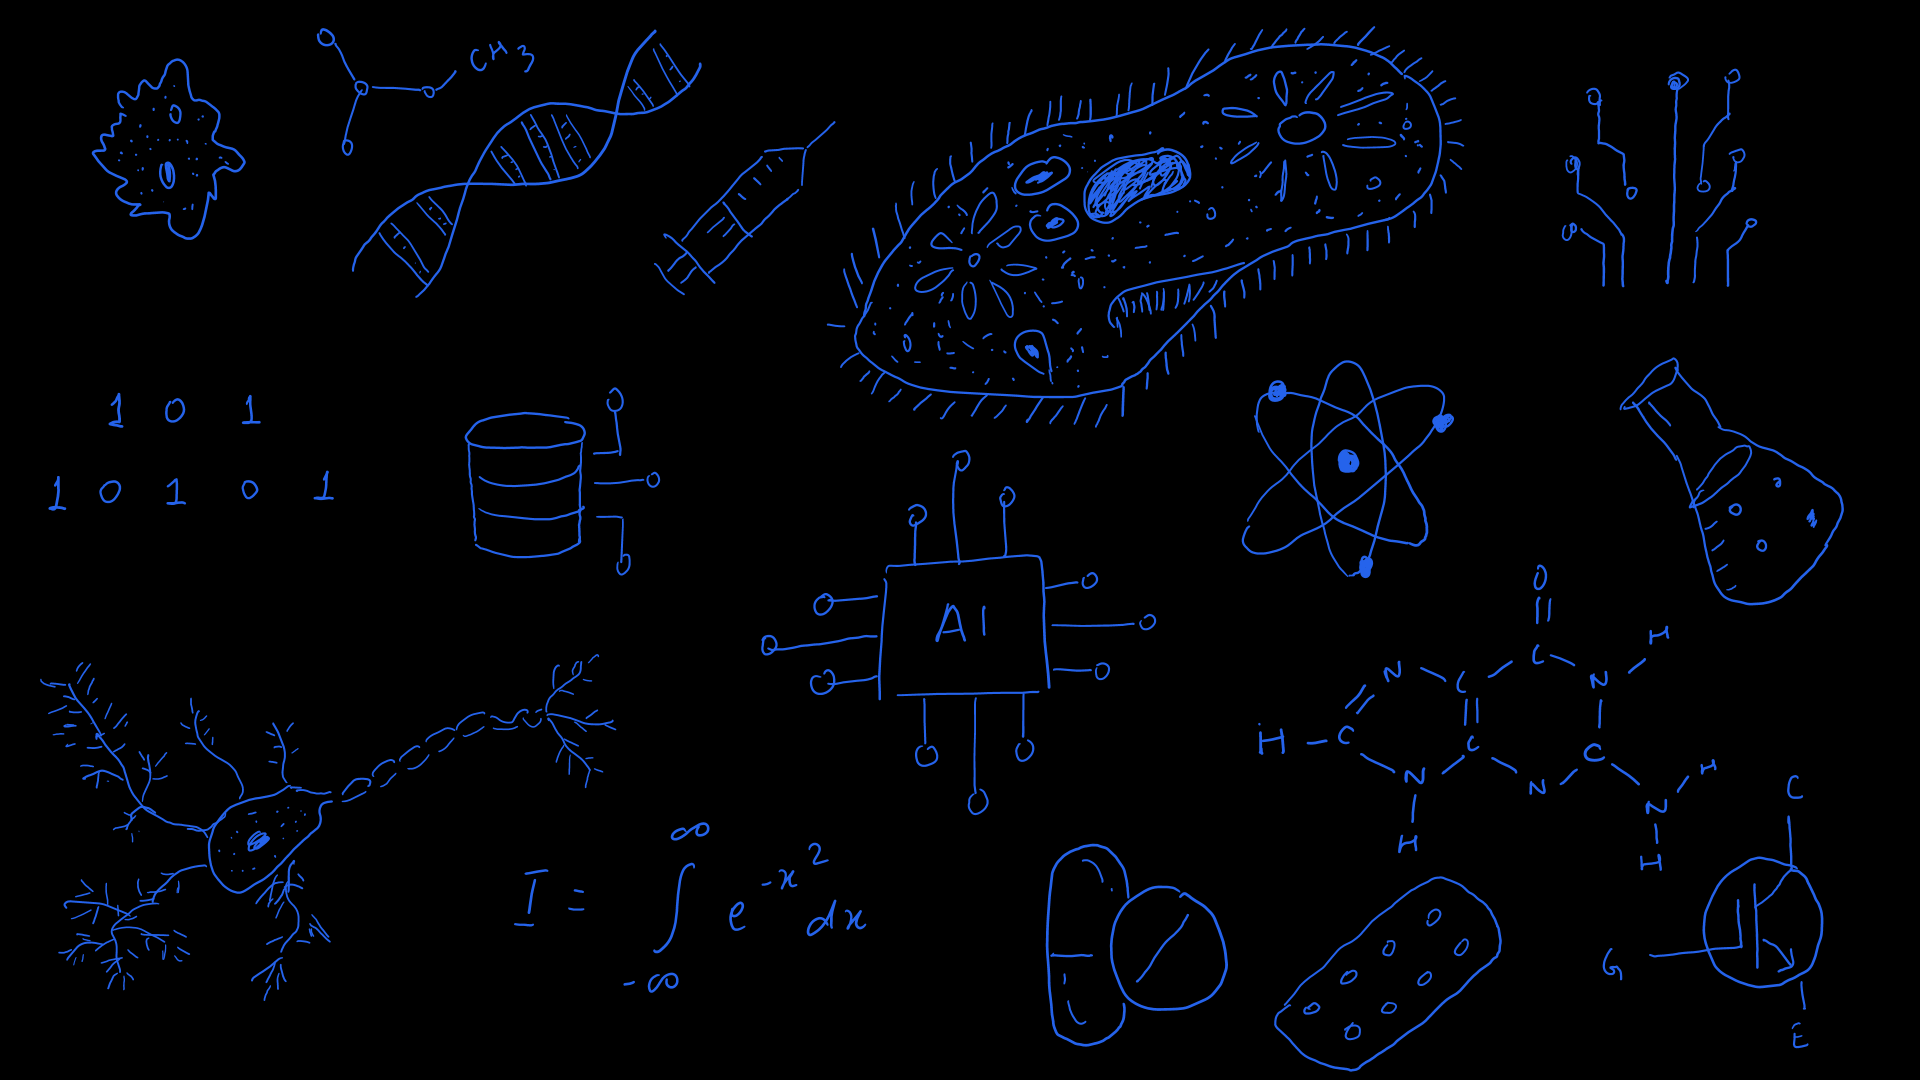 CH3
1 0 1
1 0 1 0 1
AI
O
C N H
N C
H - C C C
N N N H
H H
C
I = ∫ e^-x^2 dx
∞
-∞
G
E